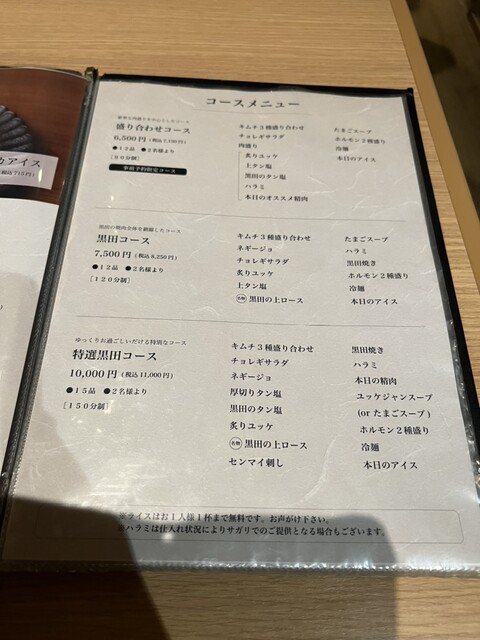 コースメニュー
盛り合わせコース
6,500円(税込7,150円)
●12品 ●2名様より
[90分制]
事前予約限定コース
キムチ3種盛り合わせ
チョレギサラダ
肉盛り
炙りユッケ
上タン塩
黒田のタン塩
ハラミ
本日のオススメ精肉
たまごスープ
ホルモン2種盛り
冷麺
本日のアイス
黒田の精肉全体を網羅したコース
黒田コース
7,500円(税込8,250円)
●12品 ●2名様より
[120分制]
キムチ3種盛り合わせ
ネギージョ
チョレギサラダ
炙りユッケ
上タン塩
名物 黒田の上ロース
たまごスープ
ハラミ
黒田焼き
ホルモン2種盛り
冷麺
本日のアイス
ゆっくりお過ごしいただける特別なコース
特選黒田コース
10,000円(税込11,000円)
●15品 ●2名様より
[150分制]
キムチ3種盛り合わせ
チョレギサラダ
ネギージョ
厚切りタン塩
黒田のタン塩
炙りユッケ
名物 黒田の上ロース
センマイ刺し
黒田焼き
ハラミ
本日の精肉
ユッケジャンスープ
(or たまごスープ)
ホルモン2種盛り
冷麺
本日のアイス
※ライスはお1人様1杯まで無料です。お声がけ下さい。
※ハラミは仕入れ状況によりサガリでのご提供となる場合もございます。
アイス